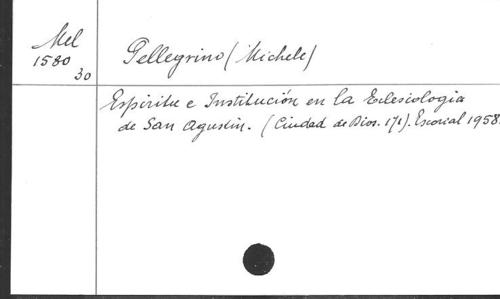 Mel
1580
30
Pellegrino (Michele)
Espiritu e Institución en la Eclesiologia
de San Agustin. (Ciudad de Dios. 171). Escorial 1958.